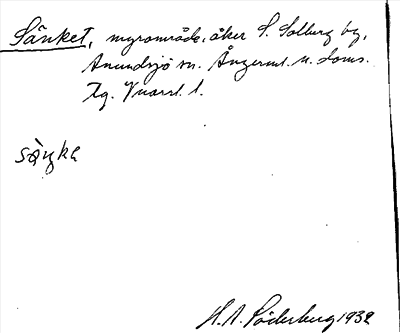 Sänket, myrområde, åker S. Solberg by,
Anundsjö sn. Ångerml. n. doms.
Tg. Vuorsl. 1.
sàŋka
H. A. Söderberg 1932